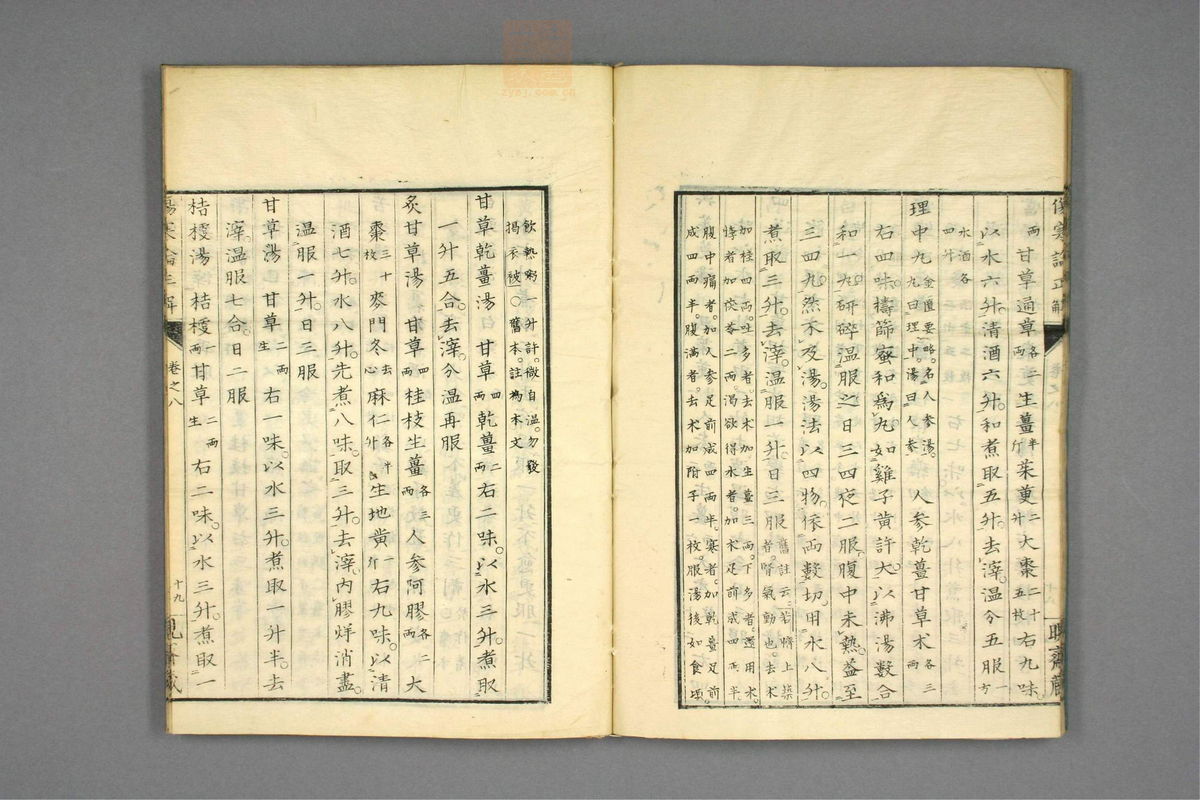 兩甘草通草各二兩生薑半斤茱萸二升大棗二十五枚右九味
以水六升清酒六升和煮取五升去滓溫分五服一方
水酒各四升
理中丸金匱要略名人參湯丸曰理中湯曰人參人參乾薑甘草朮各三兩
右四味擣篩蜜和爲丸如雞子黃許大以沸湯數合
和一丸研碎溫服之日三四夜二服腹中未熱益至
三四丸然不及湯湯法以四物依兩數切用水八升
煮取三升去滓溫服一升日三服舊註云若臍上築者腎氣動也去朮
加桂四兩吐多者去朮加生薑三兩下多者還用朮
悸者加茯苓二兩渴欲得水者加朮足前成四兩半
腹中痛者加人參足前成四兩半寒者加乾薑足前
成四兩半腹滿者去朮加附子一枚服湯後如食頃
飲熱粥一升許微自溫勿發
揭衣被○舊本註爲本文
甘草乾薑湯甘草四兩乾薑二兩右二味以水三升煮取
一升五合去滓分溫再服
炙甘草湯甘草四兩桂枝生薑各三兩人參阿膠各二兩大
棗三十枚麥門冬去心麻仁各半升生地黃一斤右九味以清
酒七升水八升先煮八味取三升去滓內膠烊消盡
溫服一升日三服
甘草湯甘草二兩生右一味以水三升煮取一升半去
滓溫服七合日二服
桔梗湯桔梗一兩甘草二兩生右二味以水三升煮取一
卷之八
十九
zysj.com.cn